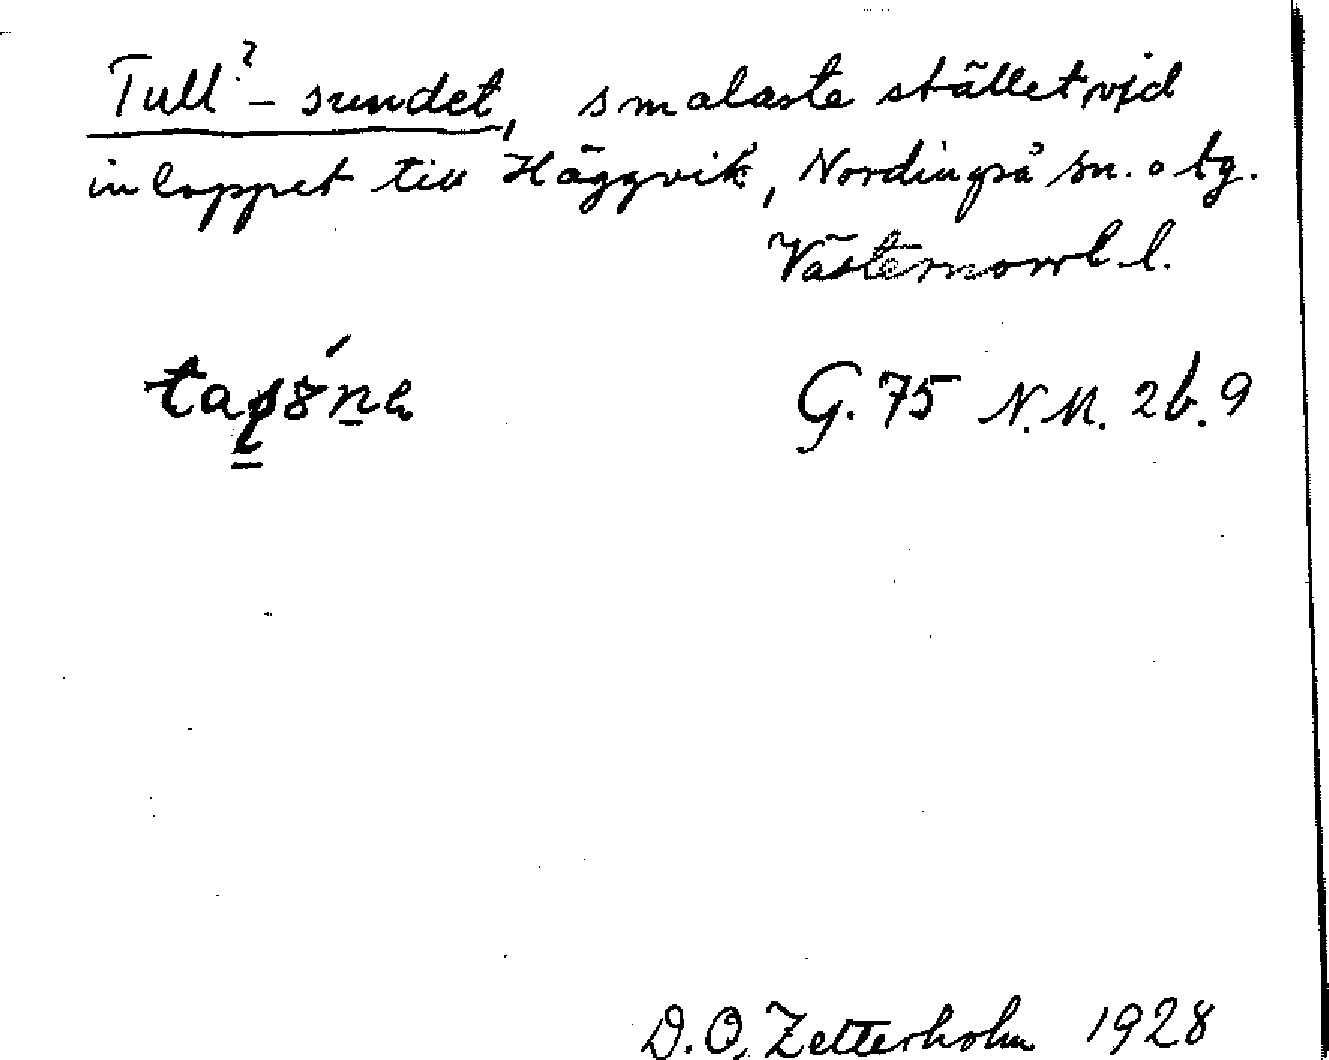 Tull?-sundet, smalaste stället vid
inloppet till Häggvik, Nordingrå sn. o tg.
Västernorrl. l.
G. 75 N.M. 2b. 9
D.O. Zetterholm 1928